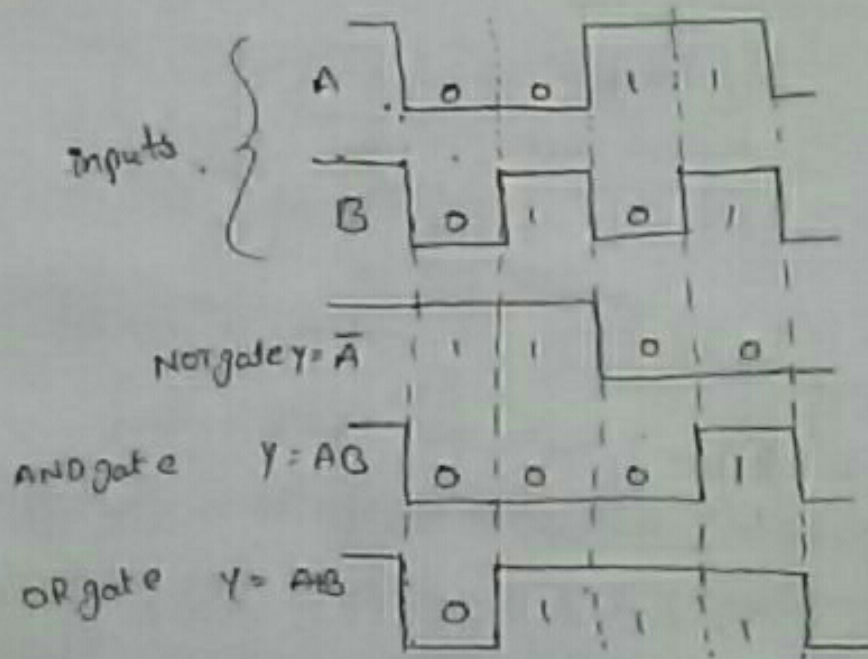 A 0 0 1 1
inputs.
B 0 1 0 1
NOT gate Y = A̅ 1 1 0 0
AND gate Y = AB 0 0 0 1
OR gate Y = A+B 0 1 1 1